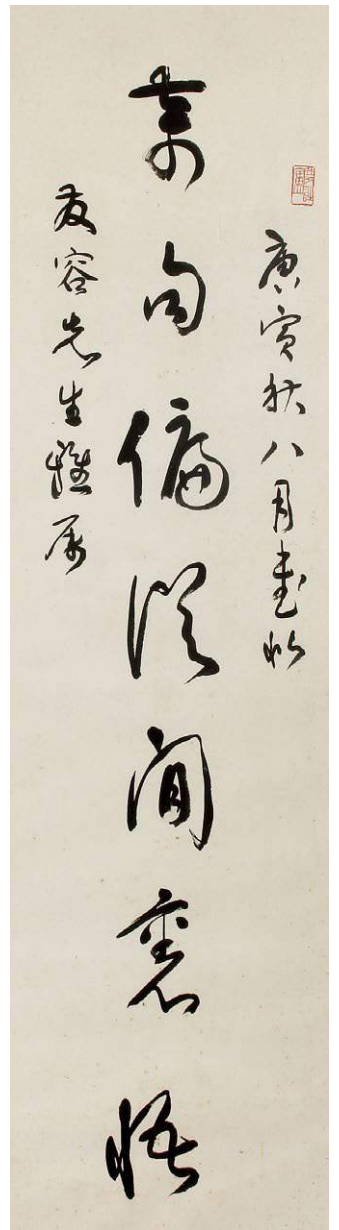 庚寅秋八月書似
奇句偏從閒裏悟
友容先生雅屬